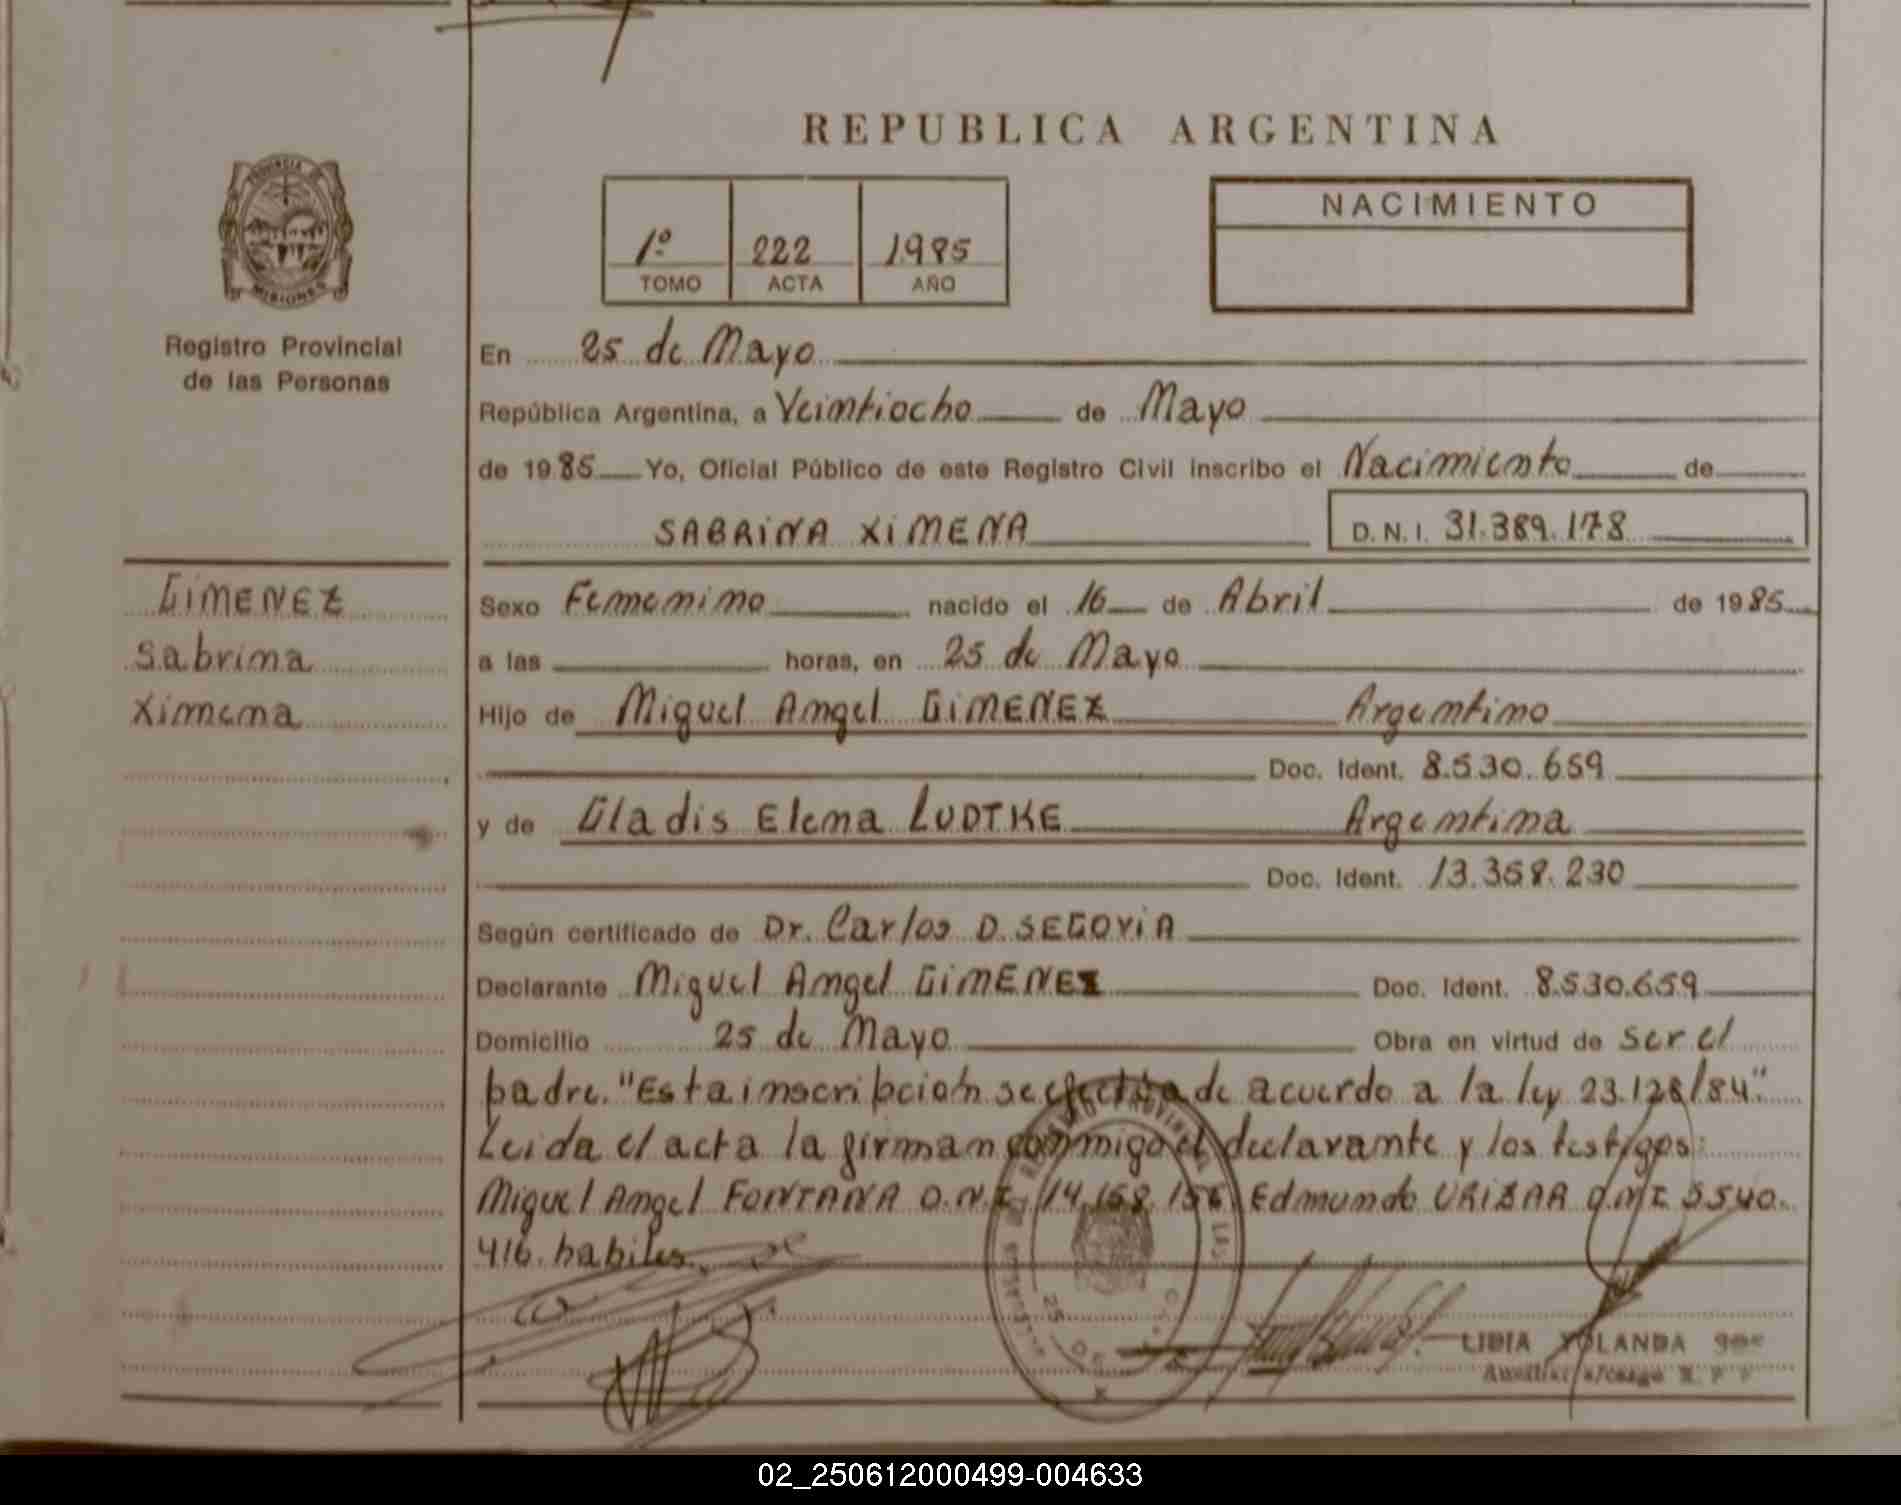 REPUBLICA ARGENTINA
PROVINCIA DE
MISIONES
Registro Provincial
de las Personas
1º 222 1985
TOMO ACTA AÑO
NACIMIENTO
En 25 de Mayo
República Argentina, a Veintiocho de Mayo
de 1985 Yo, Oficial Público de este Registro Civil inscribo el Nacimiento de
SABRINA XIMENA D.N.I. 31.389.178
GIMENEZ
Sabrina
Ximena
Sexo Femenino nacido el 16 de Abril de 1985
a las horas, en 25 de Mayo
Hijo de Miguel Angel GIMENEZ Argentino
Doc. Ident. 8.530.659
y de Gladis Elena LUDTKE Argentina
Doc. Ident. 13.358.230
Según certificado de Dr. Carlos D. SEGOVIA
Declarante Miguel Angel GIMENEZ Doc. Ident. 8.530.659
Domicilio 25 de Mayo Obra en virtud de ser el
padre. "Esta inscripción se efectúa de acuerdo a la ley 23.128/84".
Leida el acta la firman conmigo el declarante y los testigos:
Miguel Angel FONTANA D.N.I. 14.168.156 Edmundo URIZAR D.N.I 5.540.
416. habiles.
LIDIA YOLANDA
Auxiliar a/cargo R. P. P.
02_250612000499-004633